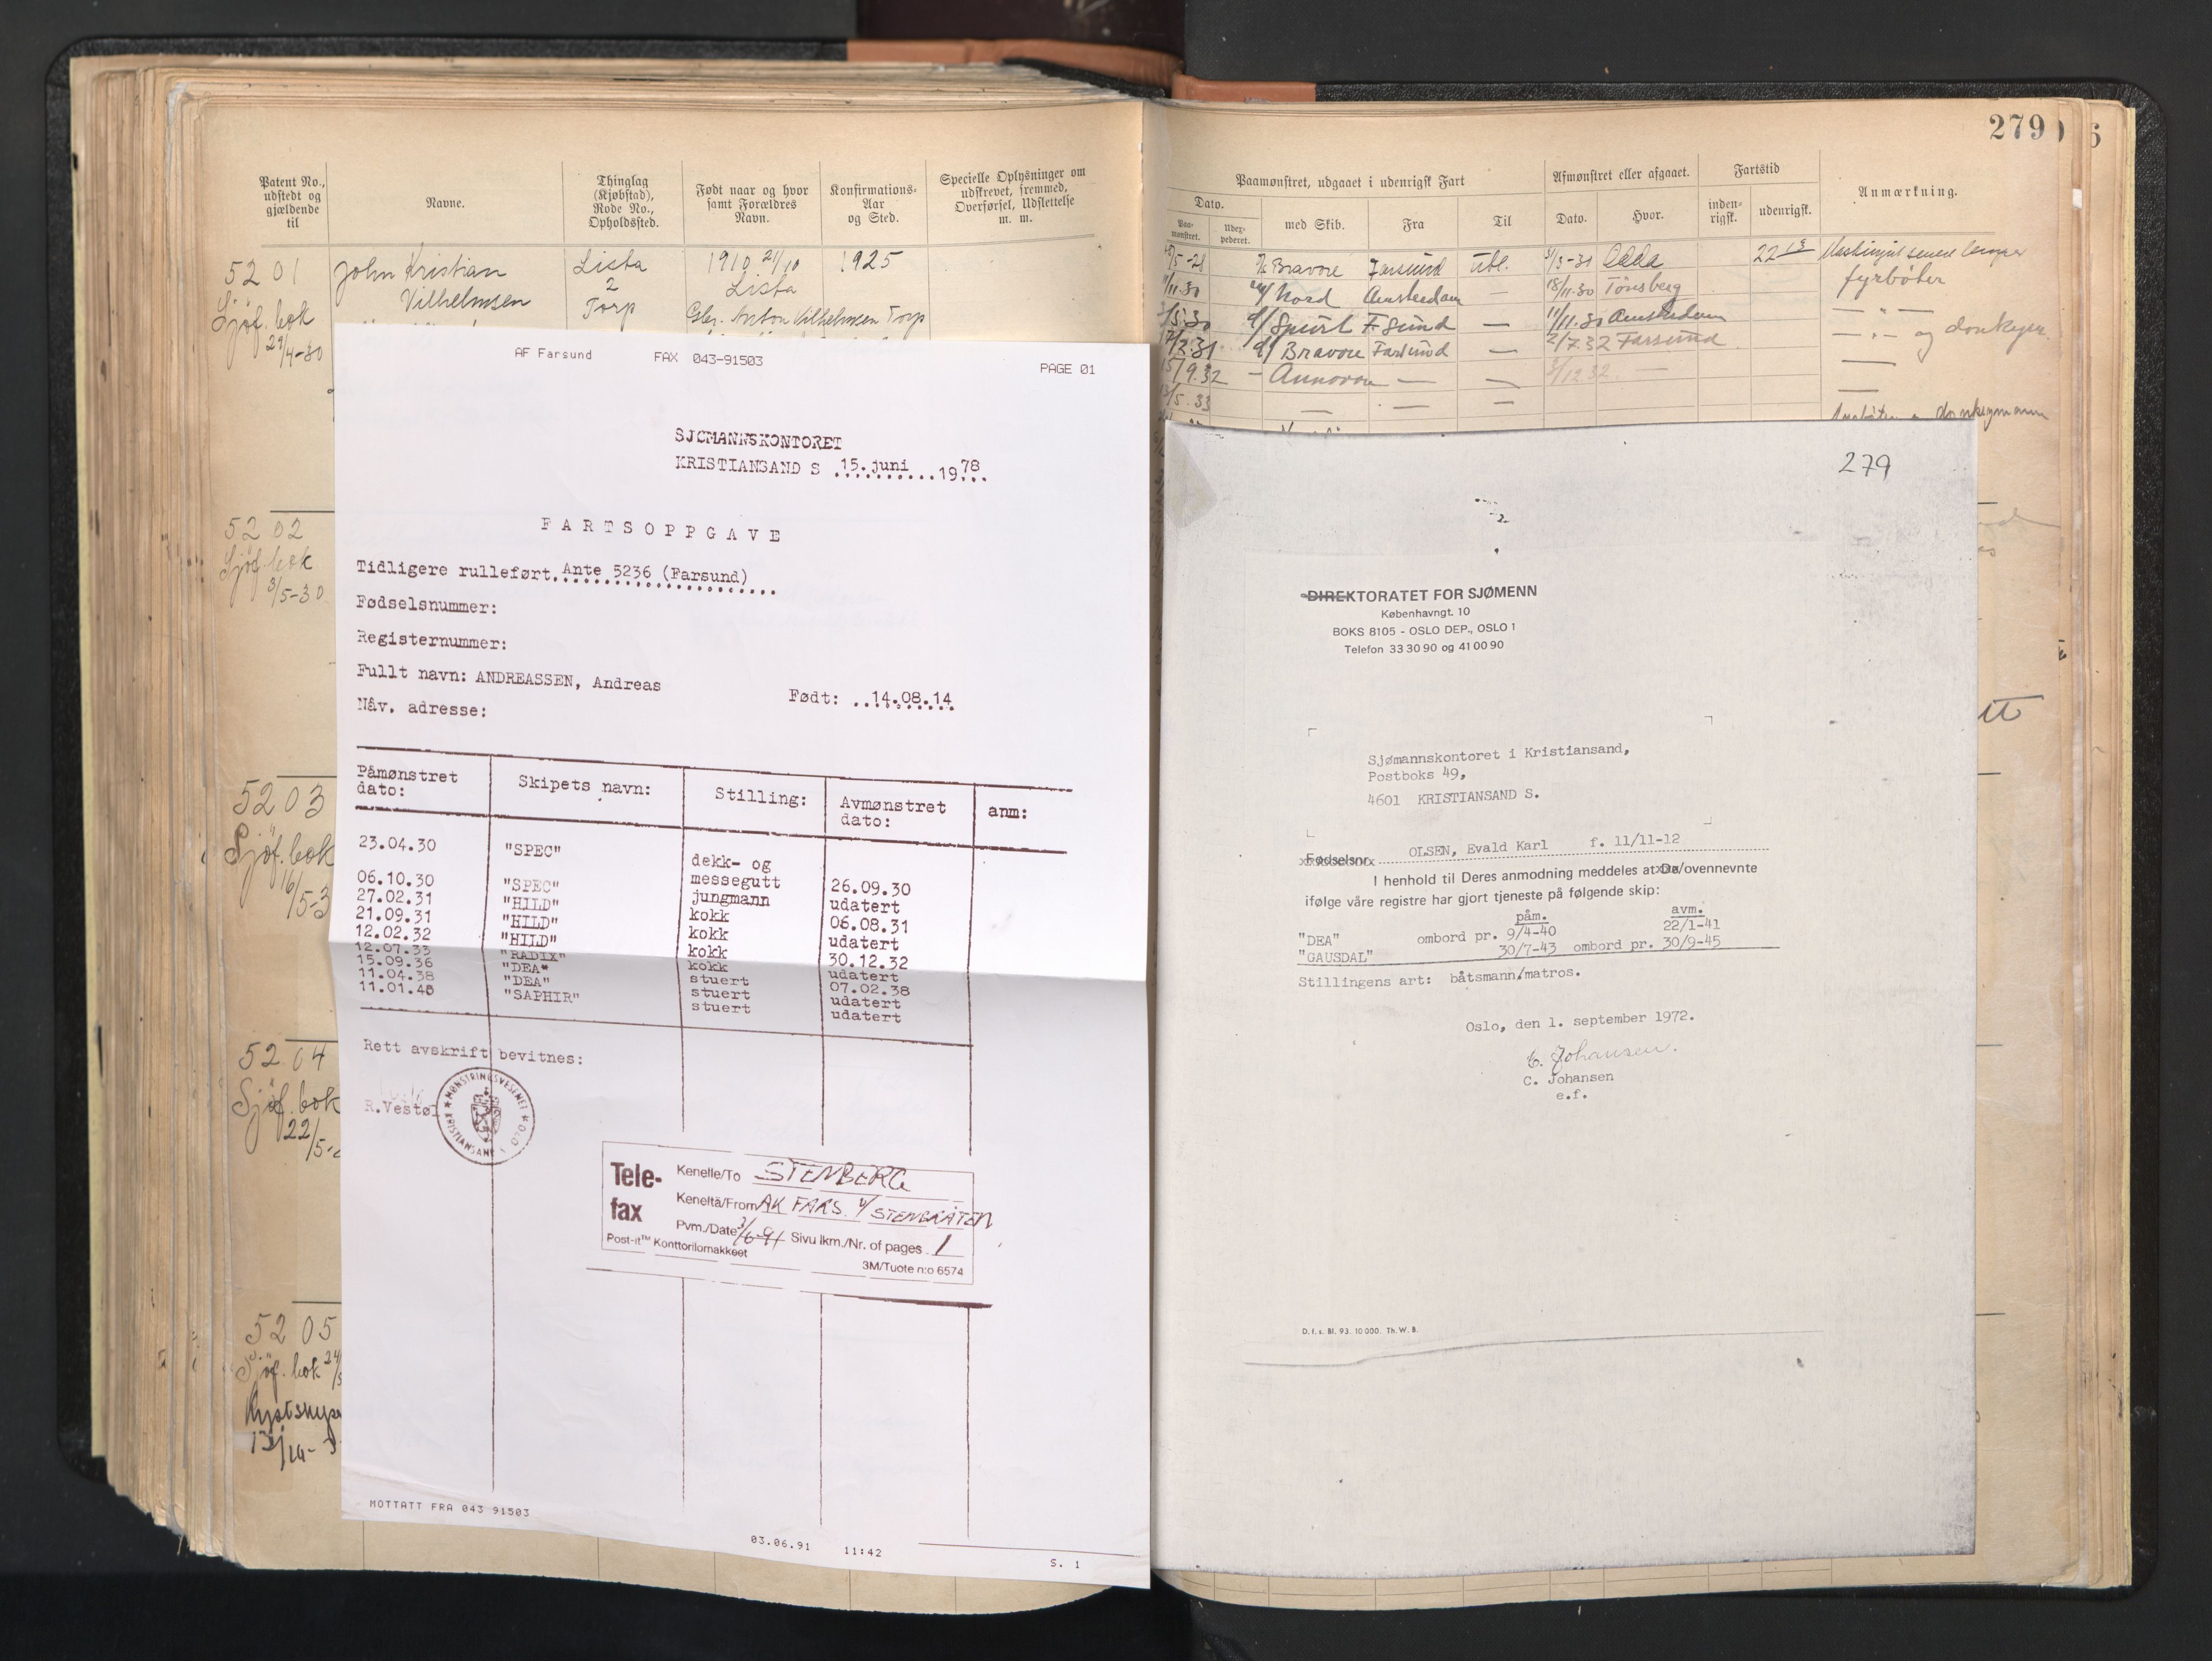 Patent No., udstedt og gjældende til
Navne.
Thinglag (Kjøbstad), Rode No., Opholdssted.
Født naar og hvor samt Forældres Navn.
Konfirmations-Aar og Sted.
Specielle Oplysninger om udskrevet, fremmed, Overførsel, Udslettelse m. m.
5201
Sjøf. bok
29/4-30
John Kristian
Vilhelmsen
Lista
2
Torp
1910 21/10
Lista
Gbr. Anton Vilhelmsen Torp
1925
5202
Sjøf. bok
3/5-30
5203
Sjøf. bok
16/5-3
5204
Sjøf. bok
22/5-
5205
Sjøf. bok 24/5
AF Farsund FAX 043-91503 PAGE 01
SJØMANNSKONTORET
KRISTIANSAND S 15. juni 1978
FARTSOPPGAVE
Tidligere rulleført. Ante 5236 (Farsund)
Fødselsnummer:
Registernummer:
Fullt navn: ANDREASSEN, Andreas
Født: ..14.08.14
Nåv. adresse:
Påmønstret dato: Skipets navn: Stilling: Avmønstret dato: anm:
23.04.30 "SPEC" dekk- og messegutt 26.09.30
06.10.30 "SPEC" jungmann udatert
27.02.31 "HILD" kokk 06.08.31
21.09.31 "HILD" kokk udatert
12.02.32 "HILD" kokk 30.12.32
12.07.33 "RADIX" kokk udatert
15.09.36 "DEA" stuert 07.02.38
11.04.38 "DEA" stuert udatert
11.01.40 "SAPHIR" stuert udatert
Rett avskrift bevitnes:
R.Vestøl
MØNSTRINGSVESENET ★ OLO ★ KRISTIANSAND
Tele-fax
Kenelle/To STENBERG
Keneltä/From AK FARS. v/ STENBRÅTEN
Pvm./Date 3/6-91 Sivu lkm./Nr. of pages 1
Post-it™ Konttorilomakkeet
3M/Tuote n:o 6574
MOTTATT FRA 043 91503
03.06.91 11:42
S. 1
279
Paamønstret, udgaaet i udenrigsk Fart
Afmønstret eller afgaaet.
Fartstid
Anmærkning.
Dato.
Paa-mønstret.
Udex-pederet.
med Skib.
Fra
Til
Dato.
Hvor.
inden-rigsk.
udenrigsk.
Bravore Farsund utl. 3/3-31 Odda
11.30 Nord Amsterdam — 18/11.30 Tönsberg fyrbøter
Spurt F.Sund — 11/11.30 Amsterdam — " —
Bravore Farsund — 2/7.32 Farsund — " — og donkeym.
15/9.32 — Annovore — — 3/12 32 — —
/5.33 — — — —
donkeymann
279
DIREKTORATET FOR SJØMENN
Københavngt. 10
BOKS 8105 - OSLO DEP., OSLO 1
Telefon 33 30 90 og 41 00 90
Sjømannskontoret i Kristiansand,
Postboks 49,
4601 KRISTIANSAND S.
Fødselsnr. OLSEN, Evald Karl f. 11/11-12
I henhold til Deres anmodning meddeles at De/ovennevnte
ifølge våre registre har gjort tjeneste på følgende skip:
påm. avm.
"DEA" ombord pr. 9/4-40 22/1-41
"GAUSDAL" 30/7-43 ombord pr. 30/9-45
Stillingens art: båtsmann/matros.
Oslo, den 1. september 1972.
C. Johansen.
C. Johansen
e.f.
D. f. s. Bl. 93. 10 000. Th. W. B.